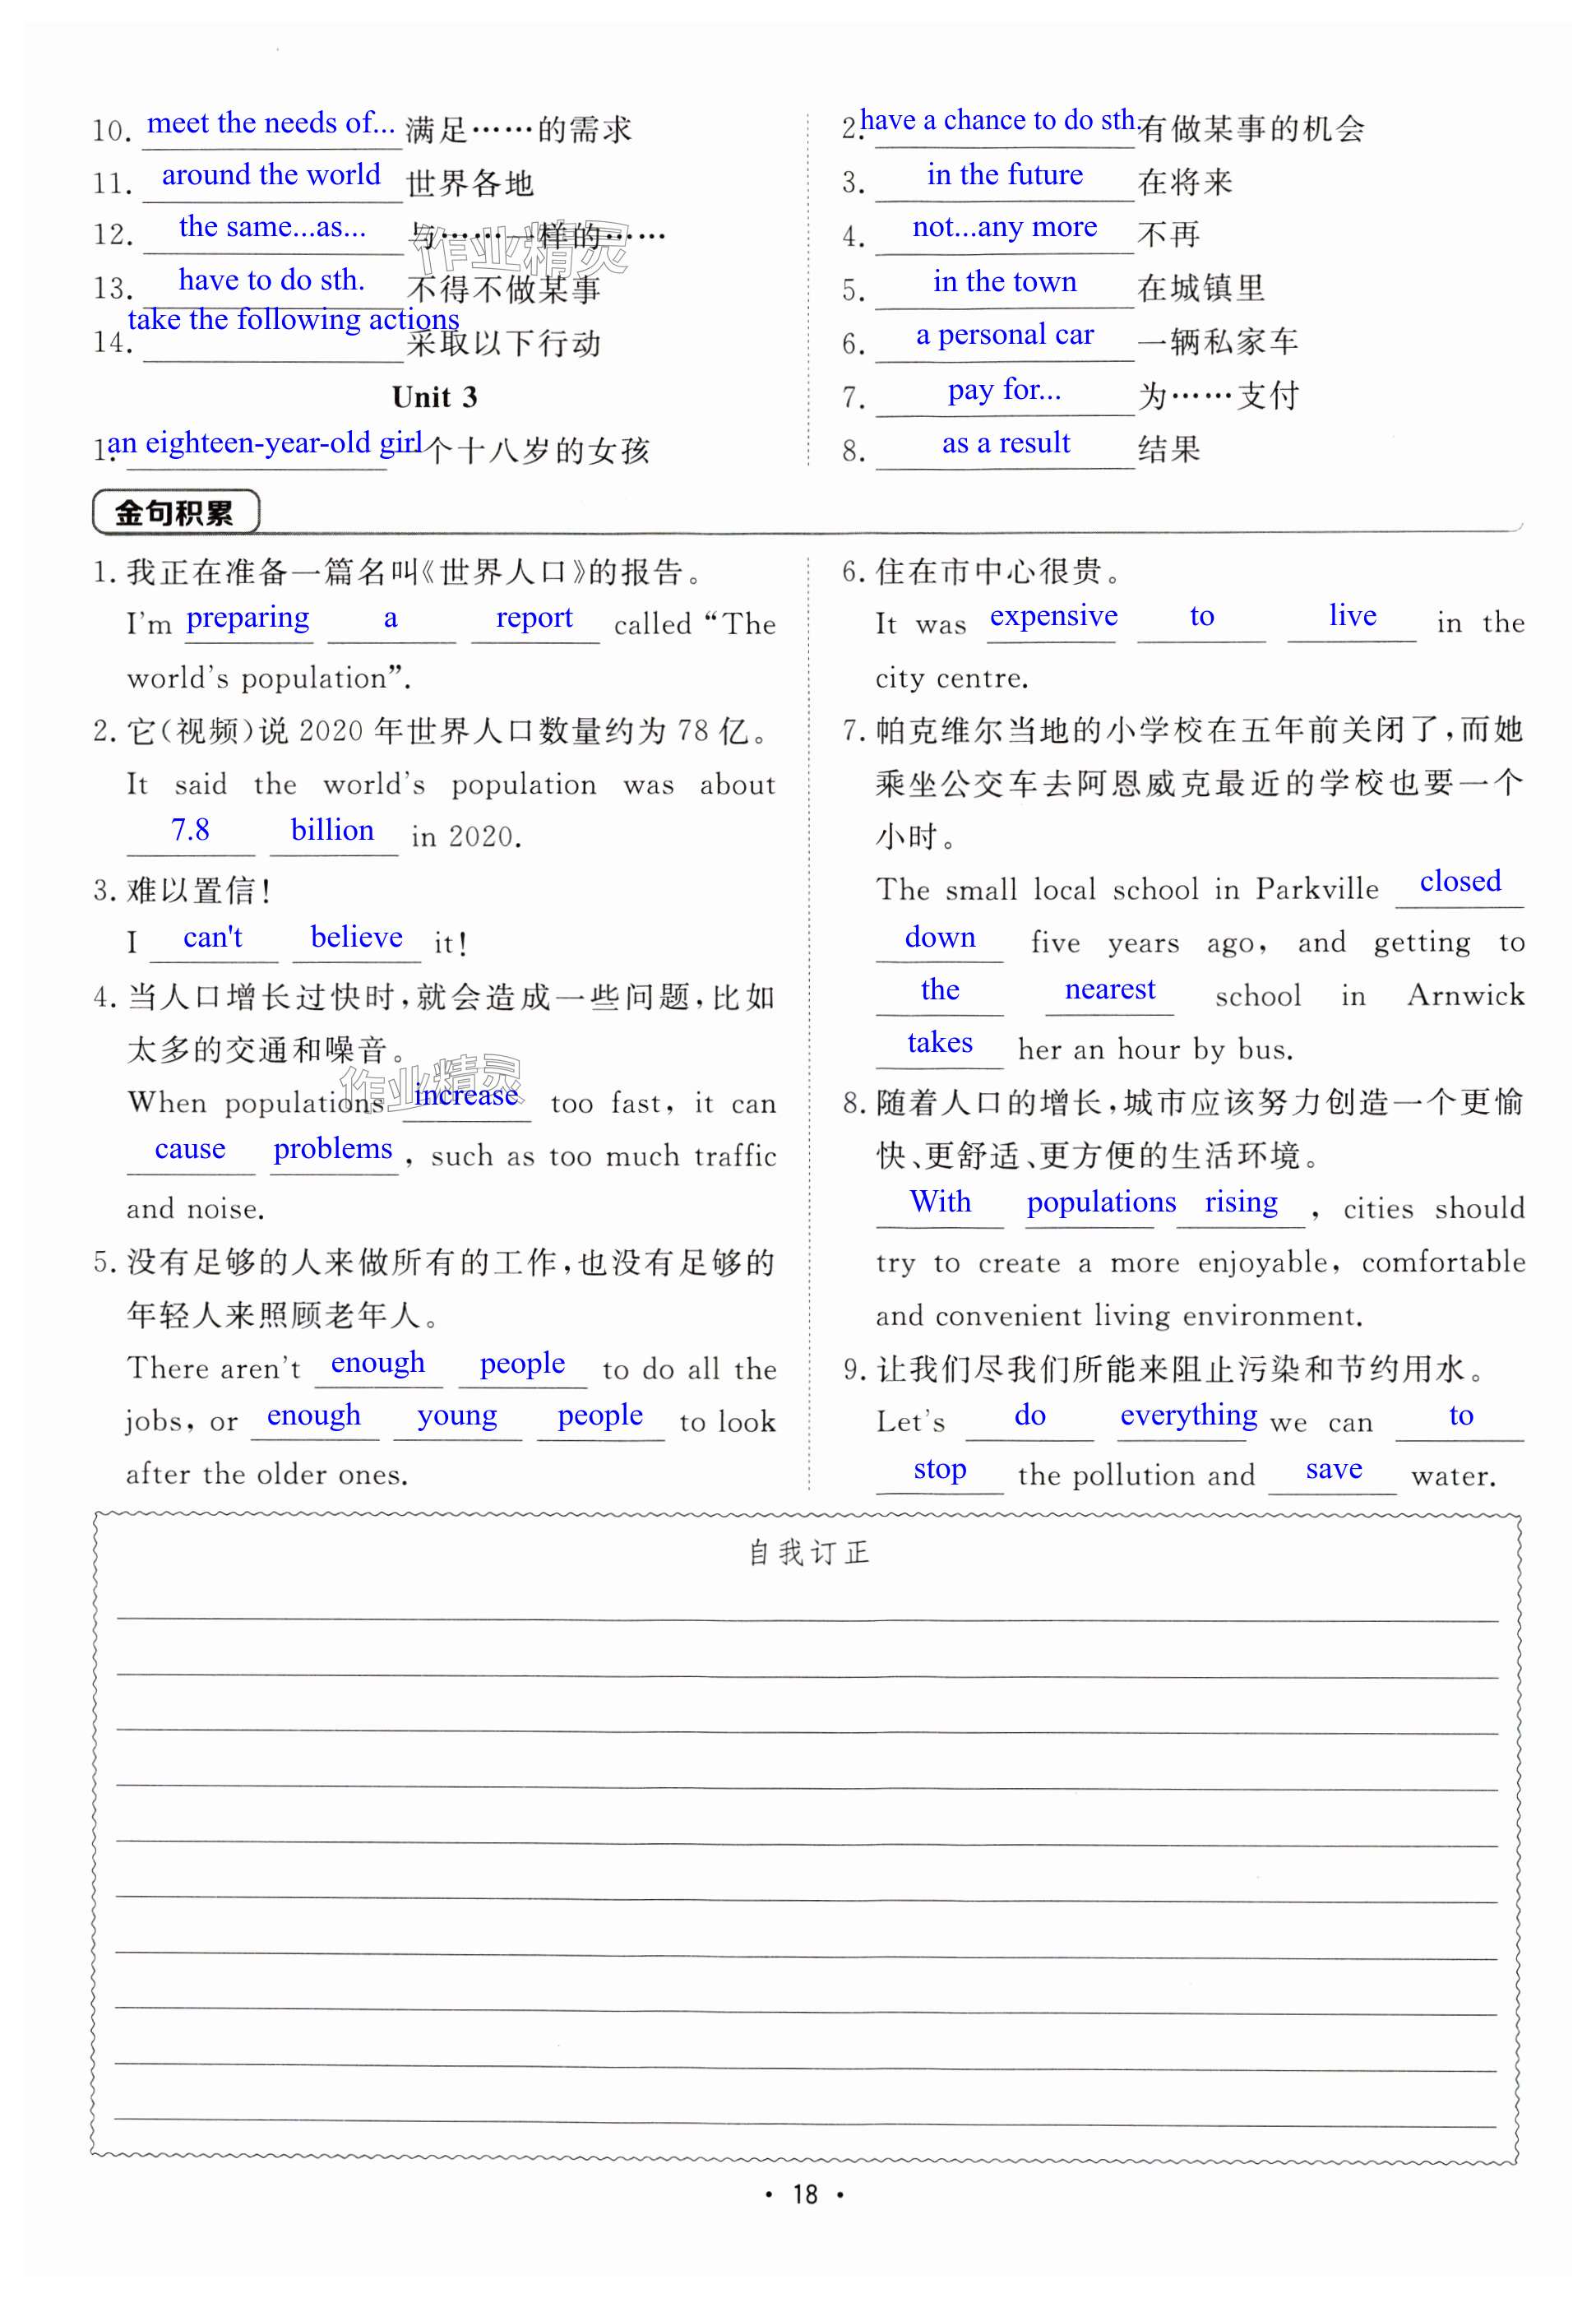 10. meet the needs of... 满足……的需求
11. around the world 世界各地
12. the same...as... 与……一样的……
13. have to do sth. 不得不做某事
14. take the following actions 采取以下行动
Unit 3
1. an eighteen-year-old girl 一个十八岁的女孩
2. have a chance to do sth. 有做某事的机会
3. in the future 在将来
4. not...any more 不再
5. in the town 在城镇里
6. a personal car 一辆私家车
7. pay for... 为……支付
8. as a result 结果
金句积累
1. 我正在准备一篇名叫《世界人口》的报告。
I'm preparing a report called “The
world's population”.
2. 它(视频)说 2020 年世界人口数量约为 78 亿。
It said the world's population was about
7.8 billion in 2020.
3. 难以置信!
I can't believe it!
4. 当人口增长过快时,就会造成一些问题,比如
太多的交通和噪音。
When populations increase too fast, it can
cause problems, such as too much traffic
and noise.
5. 没有足够的人来做所有的工作,也没有足够的
年轻人来照顾老年人。
There aren't enough people to do all the
jobs, or enough young people to look
after the older ones.
6. 住在市中心很贵。
It was expensive to live in the
city centre.
7. 帕克维尔当地的小学校在五年前关闭了,而她
乘坐公交车去阿恩威克最近的学校也要一个
小时。
The small local school in Parkville closed
down five years ago, and getting to
the nearest school in Arnwick
takes her an hour by bus.
8. 随着人口的增长,城市应该努力创造一个更愉
快、更舒适、更方便的生活环境。
With populations rising, cities should
try to create a more enjoyable, comfortable
and convenient living environment.
9. 让我们尽我们所能来阻止污染和节约用水。
Let's do everything we can to
stop the pollution and save water.
自我订正
• 18 •
作业精灵
作业精灵